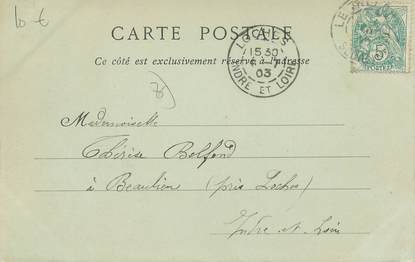 10 €
CARTE POSTALE
Ce côté est exclusivement réservé à l'adresse
LOCHES
15 30
03
INDRE ET LOIRE
LE
5
Mademoiselle
Thérèse Belfond
à Beaulieu (près Loches)
Indre et Loire